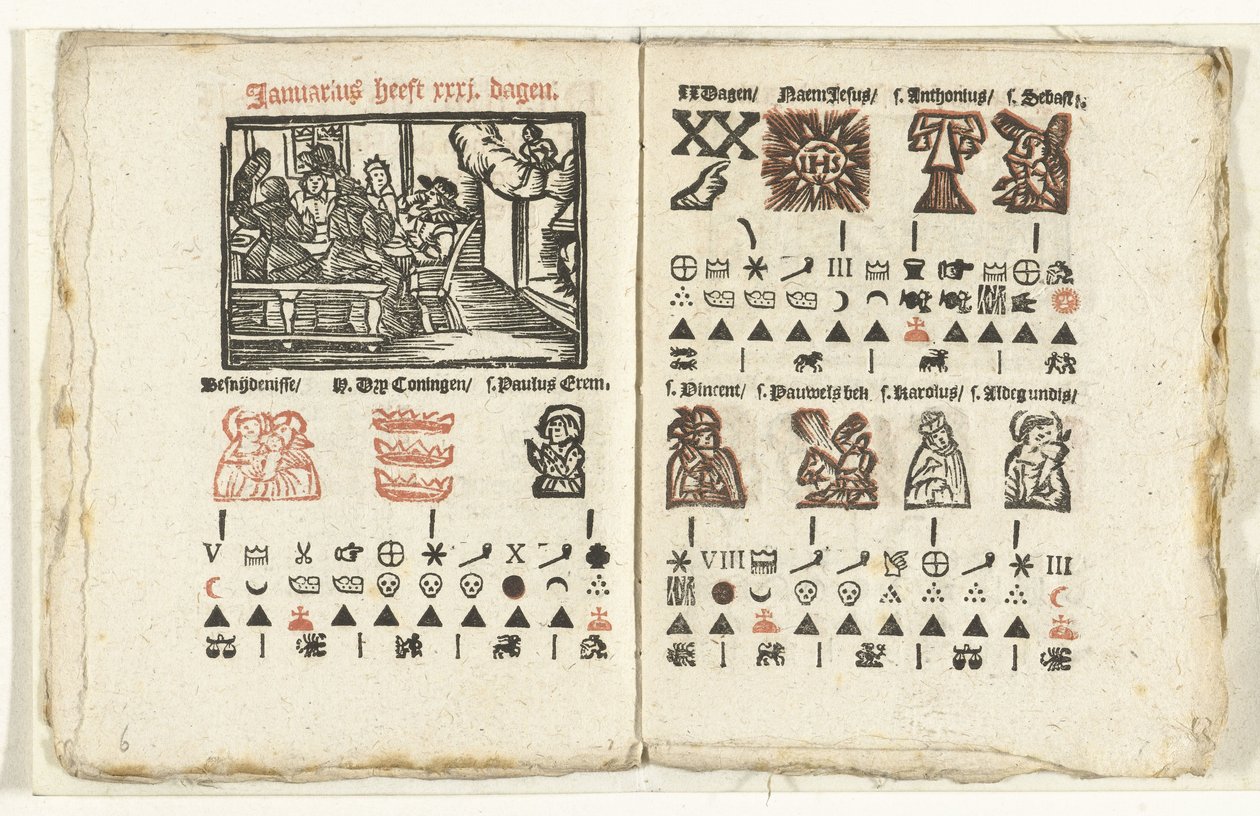 Januarius heeft xxxj. dagen.
Besnijdenisse/ H. Dry Coningen/ s. Paulus Erem.
V X
6
XX Dagen/ Naem Jesus/ s. Anthonius/ s. Sebast:
XX IHS
III
s. Vincent/ s. Pauwels bek. s. Karolus/ s. Aldegundis/
VIII III